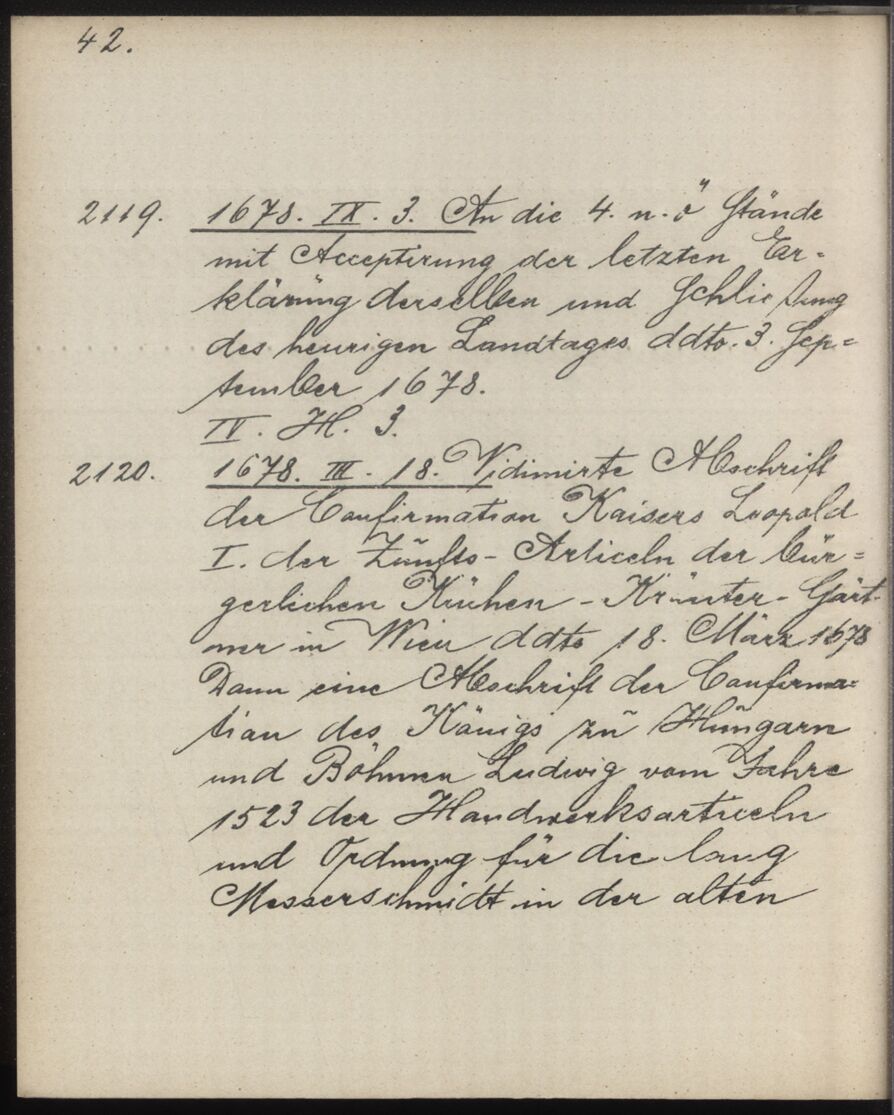 42.
2119. 1678. IX. 3. An die 4. n. ö Stände
mit Acceptirung der letzten Er-
klärung derselben und Schließung
des heurigen Landtages ddto. 3. Sep-
tember 1678.
IV. H. 3.
2120. 1678. III. 18. Vidimirte Abschrift
der Confirmation Kaisers Leopold
I. der Zunfts-Articeln der bür-
gerlichen Küchen-Kräuter-Gärt-
ner in Wien ddto 18. März 1678
Dann eine Abschrift der Confirma-
tion des Königs zu Hungarn
und Böhmen Ludwig vom Jahre
1523 der Handwerksarticeln
und Ordnung für die lang
Messerschmidt in der alten